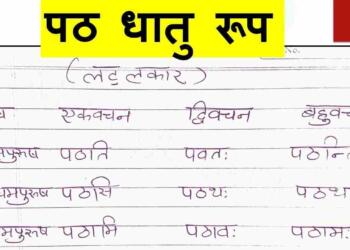 पठ धातु रूप
(लट् लकार)
एकवचन द्विवचन बहुवच
मपुरुष पठति पवतः पठन्ति
यमपुरुष पठसि पठथः पठथ
मपुरुष पठामि पठावः पठामः